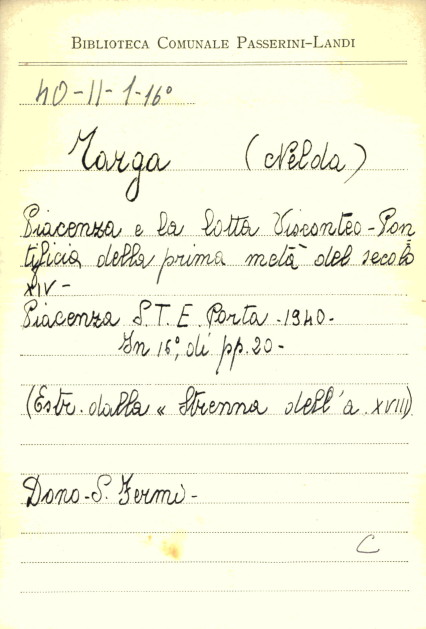 BIBLIOTECA COMUNALE PASSERINI-LANDI
40-II-1-16°
Targa (Nelda)
Piacenza e la lotta Visconteo-Pon
tificia della prima metà del secolo
XIV-
Piacenza S.T.E. Porta -1940-
In 16°, di pp. 20-
(Estr. dalla « Strenna dell'a. XVIII)
Dono-S. Fermi-
C